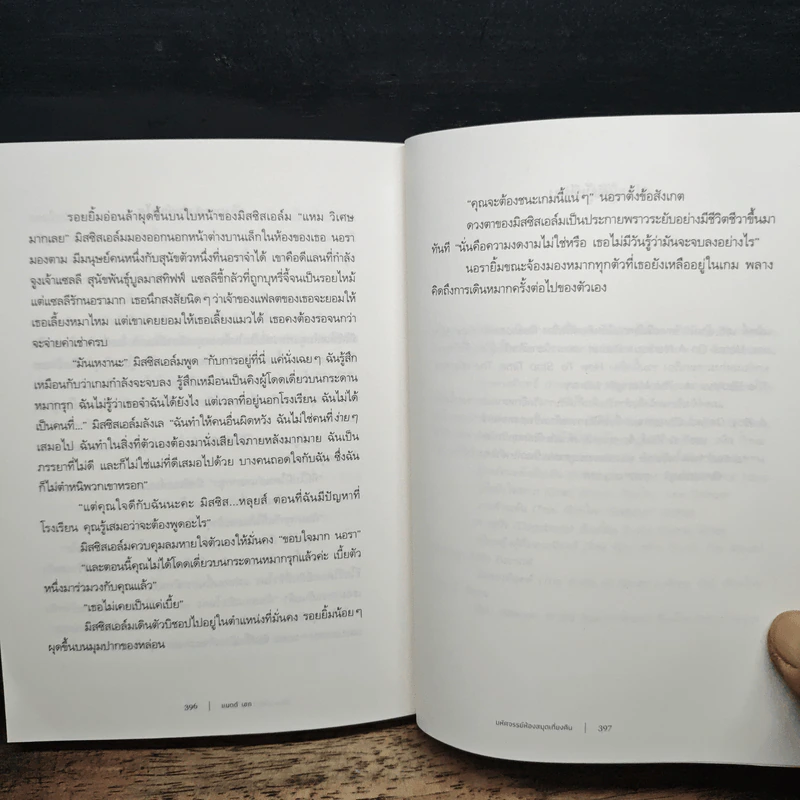 รอยยิ้มอ่อนล้าผุดขึ้นบนใบหน้าของมิสซิสเอล์ม "แหม วิเศษ
มากเลย" มิสซิสเอล์มมองออกนอกหน้าต่างบานเล็กในห้องของเธอ นอรา
มองตาม มีมนุษย์คนหนึ่งกับสุนัขตัวหนึ่งที่นอราจำได้ เขาคือดีแลนที่กำลัง
จูงเจ้าแซลลี สุนัขพันธุ์บูลมาสทิฟฟ์ แซลลีขี้กลัวที่ถูกบุหรี่จี้จนเป็นรอยไหม้
แต่แซลลีรักนอรามาก เธอนึกสงสัยนิดๆ ว่าเจ้าของแฟลตของเธอจะยอมให้
เธอเลี้ยงหมาไหม แต่เขาเคยยอมให้เธอเลี้ยงแมวได้ เธอคงต้องรอจนกว่า
จะจ่ายค่าเช่าครบ
"มันเหงานะ" มิสซิสเอล์มพูด "กับการอยู่ที่นี่ แค่นั่งเฉยๆ ฉันรู้สึก
เหมือนกับว่าเกมกำลังจะจบลง รู้สึกเหมือนเป็นคิงผู้โดดเดี่ยวบนกระดาน
หมากรุก ฉันไม่รู้ว่าเธอจำฉันได้ยังไง แต่เวลาที่อยู่นอกโรงเรียน ฉันไม่ได้
เป็นคนที่..." มิสซิสเอล์มลังเล "ฉันทำให้คนอื่นผิดหวัง ฉันไม่ใช่คนที่ง่ายๆ
เสมอไป ฉันทำในสิ่งที่ตัวเองต้องมานั่งเสียใจภายหลังมากมาย ฉันเป็น
ภรรยาที่ไม่ดี และก็ไม่ใช่แม่ที่ดีเสมอไปด้วย บางคนถอดใจกับฉัน ซึ่งฉัน
ก็ไม่ตำหนิพวกเขาหรอก"
"แต่คุณใจดีกับฉันนะคะ มิสซิส...หลุยส์ ตอนที่ฉันมีปัญหาที่
โรงเรียน คุณรู้เสมอว่าจะต้องพูดอะไร"
มิสซิสเอล์มควบคุมลมหายใจตัวเองให้มั่นคง "ขอบใจมาก นอรา"
"และตอนนี้คุณไม่ได้โดดเดี่ยวบนกระดานหมากรุกแล้วค่ะ เบี้ยตัว
หนึ่งมาร่วมวงกับคุณแล้ว"
"เธอไม่เคยเป็นแค่เบี้ย"
มิสซิสเอล์มเดินตัวบิชอปไปอยู่ในตำแหน่งที่มั่นคง รอยยิ้มน้อยๆ
ผุดขึ้นบนมุมปากของหล่อน
396 | แมตต์ เฮก
"คุณจะต้องชนะเกมนี้แน่ๆ" นอราตั้งข้อสังเกต
ดวงตาของมิสซิสเอล์มเป็นประกายพราวระยับอย่างมีชีวิตชีวาขึ้นมา
ทันที "นั่นคือความงดงามไม่ใช่หรือ เธอไม่มีวันรู้ว่ามันจะจบลงอย่างไร"
นอรายิ้มขณะจ้องมองหมากทุกตัวที่เธอยังเหลืออยู่ในเกม พลาง
คิดถึงการเดินหมากครั้งต่อไปของตัวเอง
มหัศจรรย์ห้องสมุดเที่ยงคืน | 397